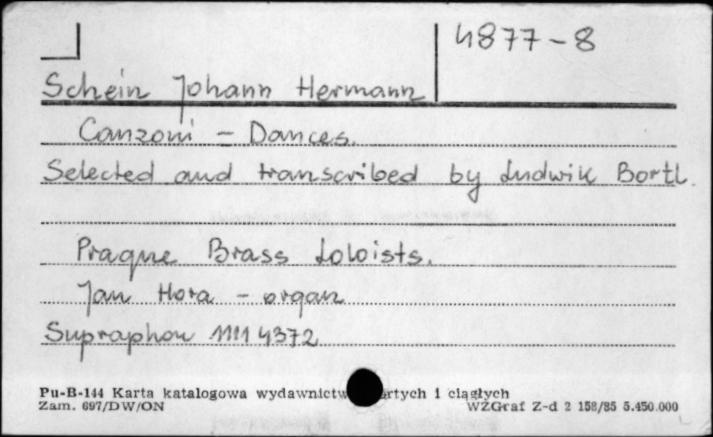 4877-8
Schein Johann Hermann
Canzoni - Dances.
Selected and transcribed by Ludwik Bortl.
Prague Brass Soloists.
Jan Hora - organ
Supraphon 1111 4372
Pu-B-144 Karta katalogowa wydawnictw artych i ciągłych
Zam. 697/DW/ON WZGraf Z-d 2 158/85 5.450.000